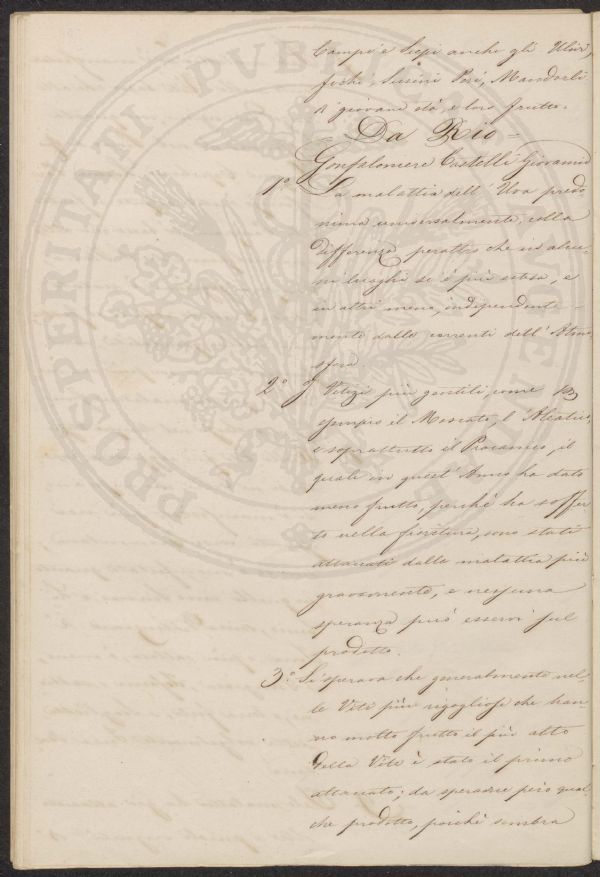 Campi e Siepi anche gli Ulivi,
fichi, Susini Peri, Mandorli
di giovane età, e loro frutto.
Da Rio =
Gonfaloniere Castelli Giovanni
1° La malattia dell' Uva predo
mina universalmente, colla
differenza peraltro che in alcu-
ni luoghi si è più estesa, e
in altri meno, indipendente-
mente dalle correnti dell' Atmo
sfera.
2° I Vitigi più gentili, come per
esempio il Moscato, l' Aleatico,
e soprattutto il Procanico, il
quale in quest' Anno ha dato
meno frutto, perchè ha soffer
to nella fioritura, sono stati
attaccati dalla malattia più
gravemente, e nessuna
speranza può esservi sul
prodotto.
3° Si sperava che generalmente nel-
le Viti più rigogliose che han-
no molto frutto il più alto
della Vite è stato il primo
attaccato; da sperarsi però qual
che prodotto, poichè sembra
PROSPERITATI PUBLI